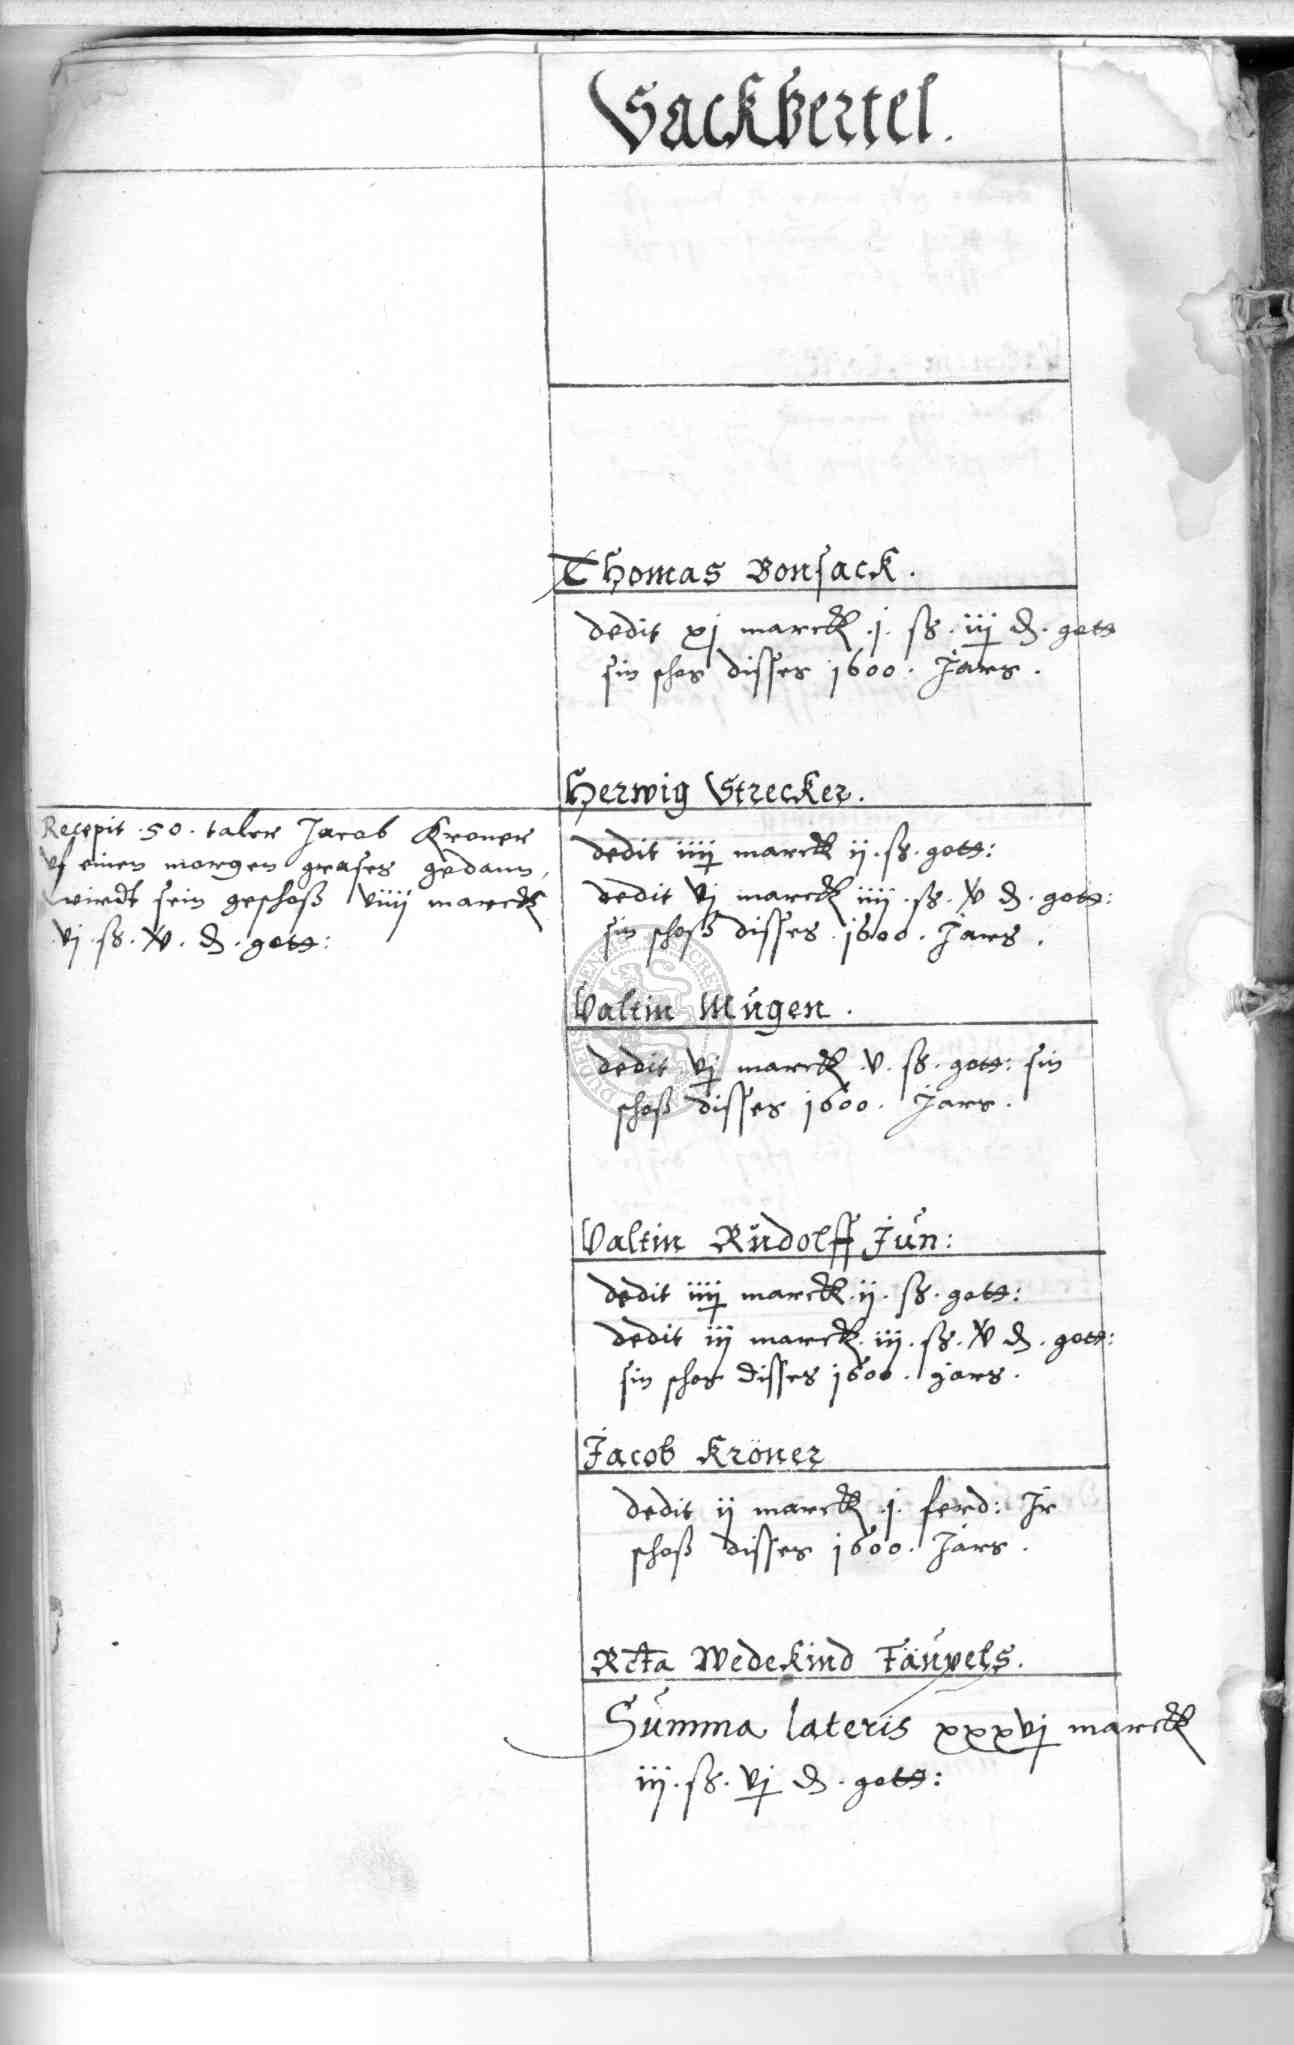 Sackvertel.
Thomas Bonsack.
dedit xj marck .j. ß. iij d. gots
sin schos disses 1600. Jars.
Herwig Strecker.
Recepit .50. taler Jacob Kroner
uf einen morgen grases gedann,
wirdt sein geschoß viiij marck
.vj. ß. xv. d. gots:
dedit iiij marck ij. ß. gots:
dedit vj marck iiij. ß. xv d. gots:
sin schoß disses 1600. Jars.
Valtin Mugen.
dedit vj marck .v. ß. gots: sin
schoß disses 1600. Jars.
Valtin Rudolff Jun:
dedit iiij marck .ij. ß. gots:
dedit iij marck. iij. ß. xv d. gots:
sin schos disses 1600. jars.
Jacob Kröner
dedit ij marck .j. ferd: Jr
schoß disses 1600. Jars.
Rcta Wedekind
Summa lateris xxxvj marck
iij. ß. vj d. gots: